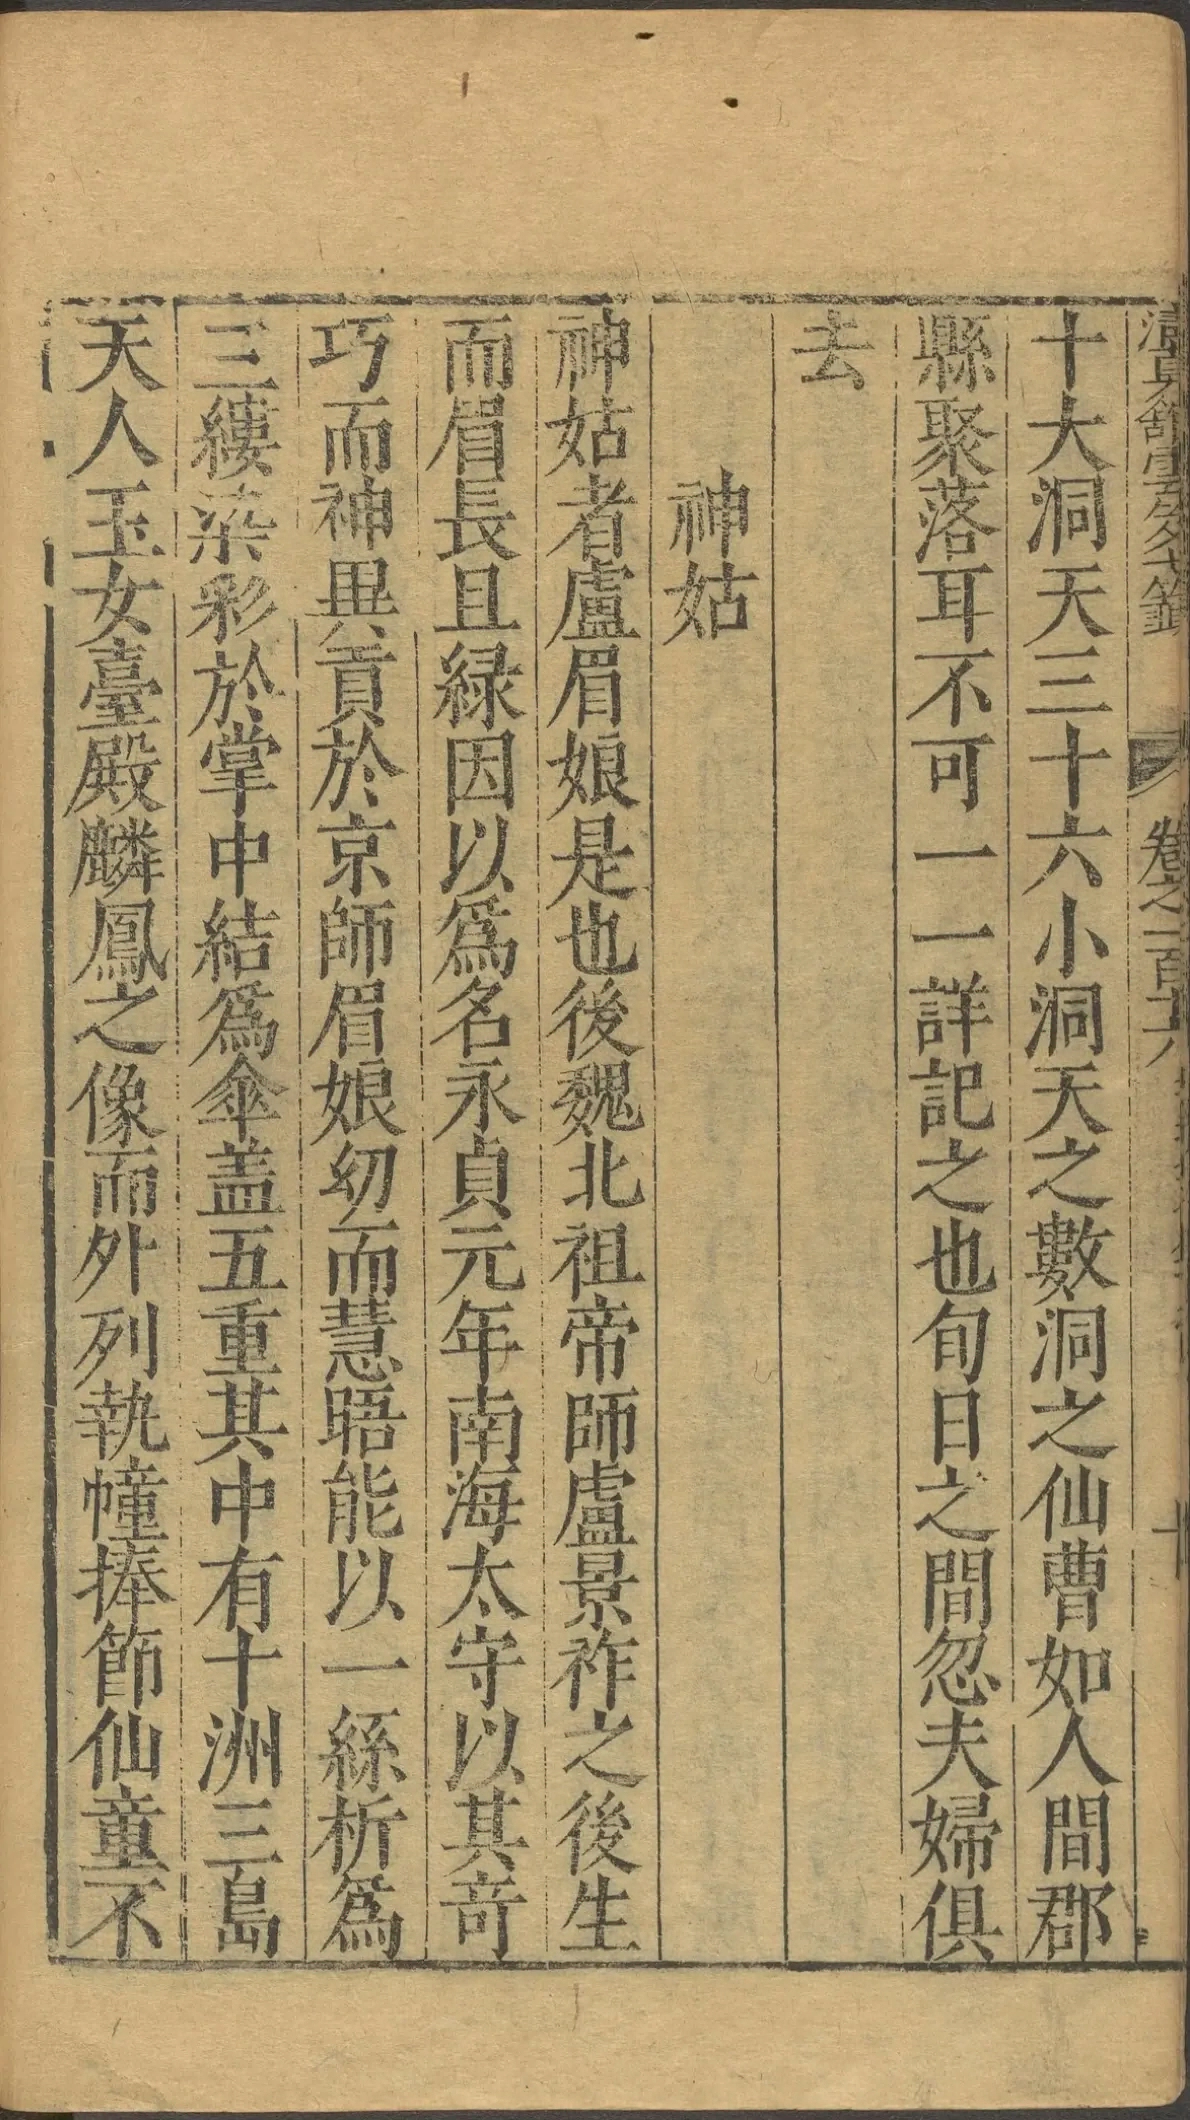 卷之一百十六
十大洞天三十六小洞天之數洞之仙曹如人間郡
縣聚落耳不可一一詳記之也旬日之間忽夫婦俱
去
神姑
神姑者盧眉娘是也後魏北祖帝師盧景祚之後生
而眉長且緑因以爲名永貞元年南海太守以其竒
巧而神異貢於京師眉娘幼而慧晤能以一絲析爲
三縷染彩於掌中結爲傘盖五重其中有十洲三島
天人玉女臺殿麟鳳之像而外列執幢捧節仙童不